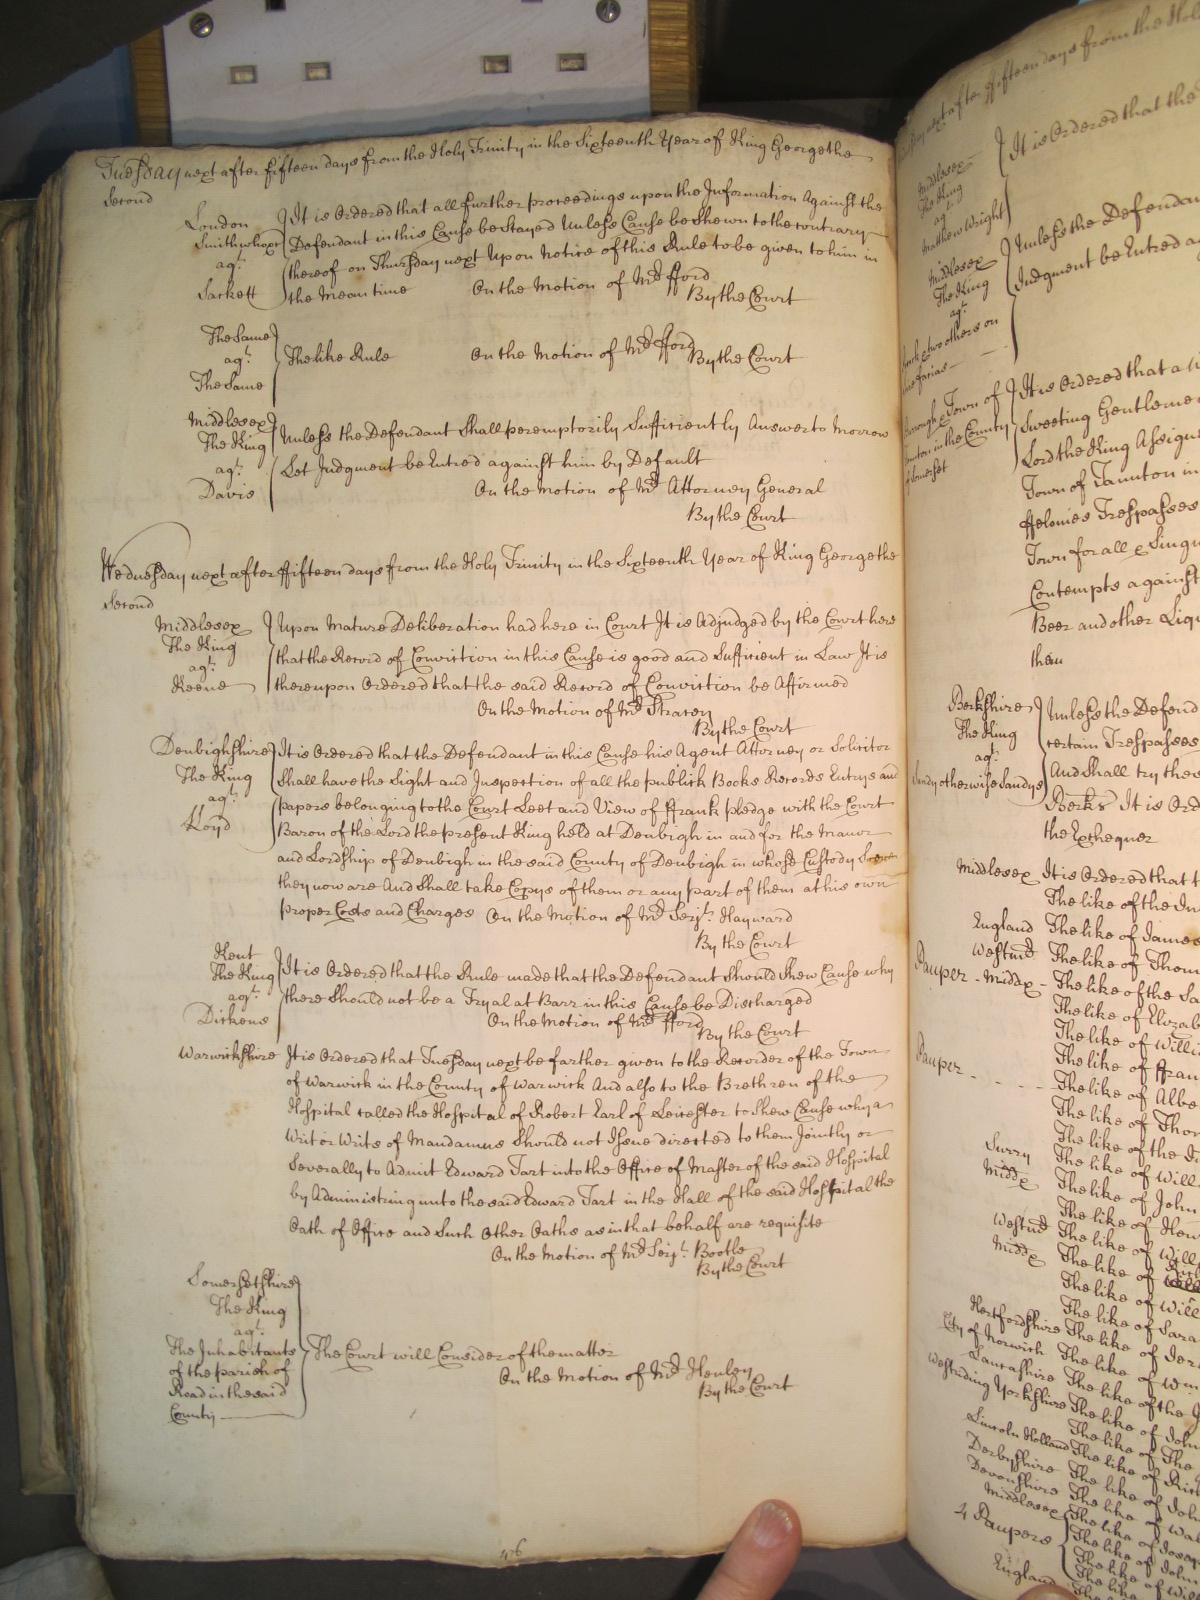 Tuesday next after fifteen days from the Holy Trinity in the Sixteenth Year of King George the
Second
London
Smithwhope
agt.
Sackett
It is Ordered that all further proceedings upon the Information Against the
Defendant in this Cause be Stayed Unless Cause be Shewn to the contrary
thereof on Thursday next Upon notice of this Rule to be given to him in
the Mean time On the Motion of Mr. fford
By the Court
The Same
agt.
The Same
The like Rule On the Motion of Mr. fford
By the Court
Middlesex
The King
agt.
Davis
Unless the Defendant Shall peremptorily Sufficiently Answer to Morrow
Let Judgment be Entred against him by Default
On the Motion of Mr. Attorney General
By the Court
Wednesday next after fifteen days from the Holy Trinity in the Sixteenth Year of King George the
Second
Middlesex
The King
agt.
Keene
Upon Mature Deliberation had here in Court It is Adjudged by the Court here
that the Record of Conviction in this Cause is good and Sufficient in Law It is
thereupon Ordered that the said Record of Conviction be Affirmed
On the Motion of Mr. Stracey
By the Court
Denbighshire
The King
agt.
Lloyd
It is Ordered that the Defendant in this Cause his Agent Attorney or Solicitor
Shall have the Sight and Inspection of all the publick Books Records Entrys and
papers belonging to the Court Leet and View of ffrank pledge with the Court
Baron of the Lord the present King held at Denbigh in and for the Manor
and Lordship of Denbigh in the said County of Denbigh in whose Custody Soever
they now are And Shall take Copys of them or any part of them at his own
proper Costs and Charges On the Motion of Mr. Serjt. Hayward
By the Court
Kent
The King
agt.
Dickens
It is Ordered that the Rule made that the Defendant Should Shew Cause why
there Should not be a Tryal at Barr in this Cause be Discharged
On the Motion of Mr. fford
By the Court
Warwickshire It is Ordered that Tuesday next be farther given to the Recorder of the Town
of Warwick in the County of Warwick And also to the Brethren of the
Hospital called the Hospital of Robert Earl of Leicester to Shew Cause why a
Writ or Writs of Mandamus Should not Issue directed to them Jointly or
Severally to Admit Edward Tart into the Office of Master of the said Hospital
by Administring unto the said Edward Tart in the Hall of the said Hospital the
Oath of Office and Such Other Oaths as in that behalf are requisite
On the Motion of Mr. Serjt. Bootle
By the Court
Somersetshire
The King
agt.
The Inhabitants
of the parish of
Road in the said
County
The Court will Consider of the matter
On the Motion of Mr. Henley
By the Court
46
next after fifteen days from the Holy
Middlesex
The King
agt.
Matthew Wright
It is Ordered that the
Middlesex
The King
agt.
two others on
Unless the Defendant
Judgment be Entred
Borough & Town of
Taunton in the County
of Somerset
It is Ordered that
Sweeting Gentlemen
Lord the King Assigned
Town of Taunton in
ffelonies Trespasses
Town for all & Singular
Contempts against
Beer and other Liquors
them
Berkshire
The King
agt.
Sandy otherwise Sandys
Unless the Defend
certain Trespasses
And Shall try the
Berks It is Ord
the Exchequer
Middlesex It is Ordered that
The like of the
England The like of James
Westmr. The like of Thom
Pauper - Middx - The like of the Sa
The like of Elizab
The like of Willi
The like of ffran
Pauper - The like of Albe
The like of Thor
The like of the
Surry The like of Will
Middx The like of John
The like of Hen
Westmr. The like of Will
Middx The like of
The like of Will
The like of Sara
Hertfordshire The like of
City of Norwich The like of Wm
Lancashire The like of the
Westriding Yorkshire The like of John
The like of The
Lincoln Holland The like of Rich
Derbyshire The like of John
Devonshire The like of Wal
Middlesex The like of Joseph
4 Paupers The like of John
The like of Will
England The like